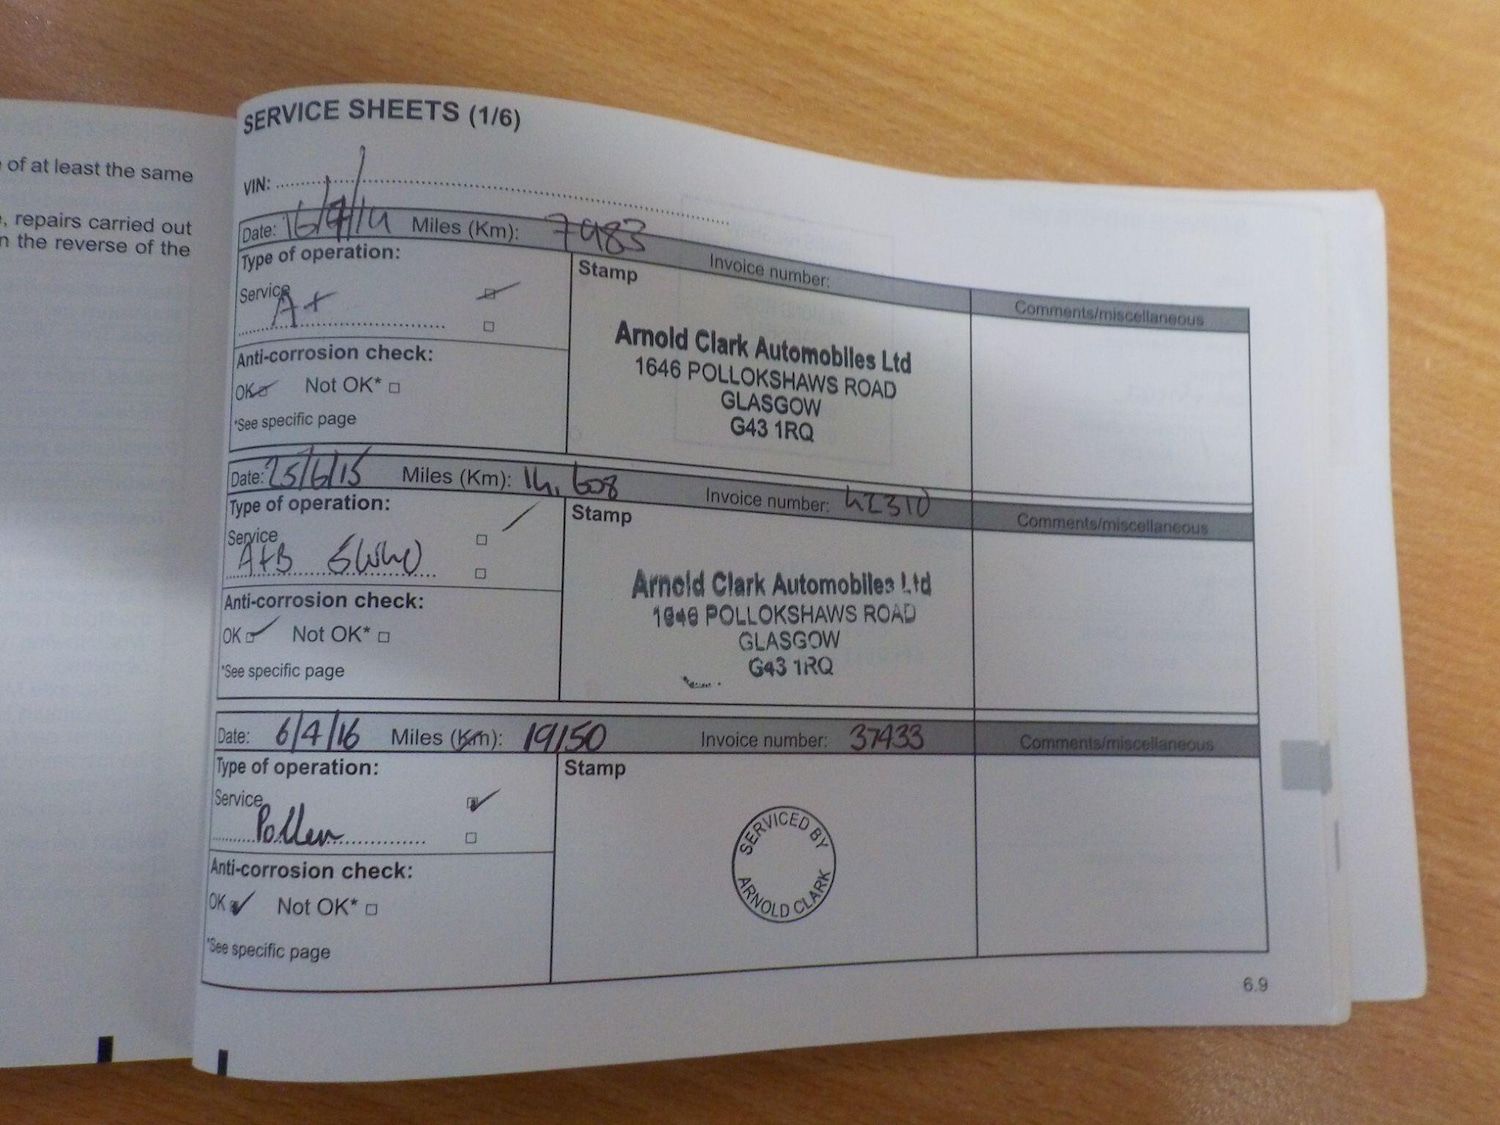 of at least the same
, repairs carried out
n the reverse of the
SERVICE SHEETS (1/6)
VIN:
Date: 16/9/14 Miles (Km): 7983 Invoice number: Comments/miscellaneous
Type of operation:
Service
A+
Anti-corrosion check:
OK Not OK*
*See specific page
Stamp
Arnold Clark Automobiles Ltd
1646 POLLOKSHAWS ROAD
GLASGOW
G43 1RQ
Date: 25/6/15 Miles (Km): 14,608 Invoice number: 42310 Comments/miscellaneous
Type of operation:
Service
A+B
Anti-corrosion check:
OK Not OK*
*See specific page
Stamp
Arnold Clark Automobiles Ltd
1646 POLLOKSHAWS ROAD
GLASGOW
G43 1RQ
Date: 6/4/16 Miles (Km): 19150 Invoice number: 37433 Comments/miscellaneous
Type of operation:
Service
Pollen
Anti-corrosion check:
OK Not OK*
*See specific page
Stamp
SERVICED BY
ARNOLD CLARK
6.9